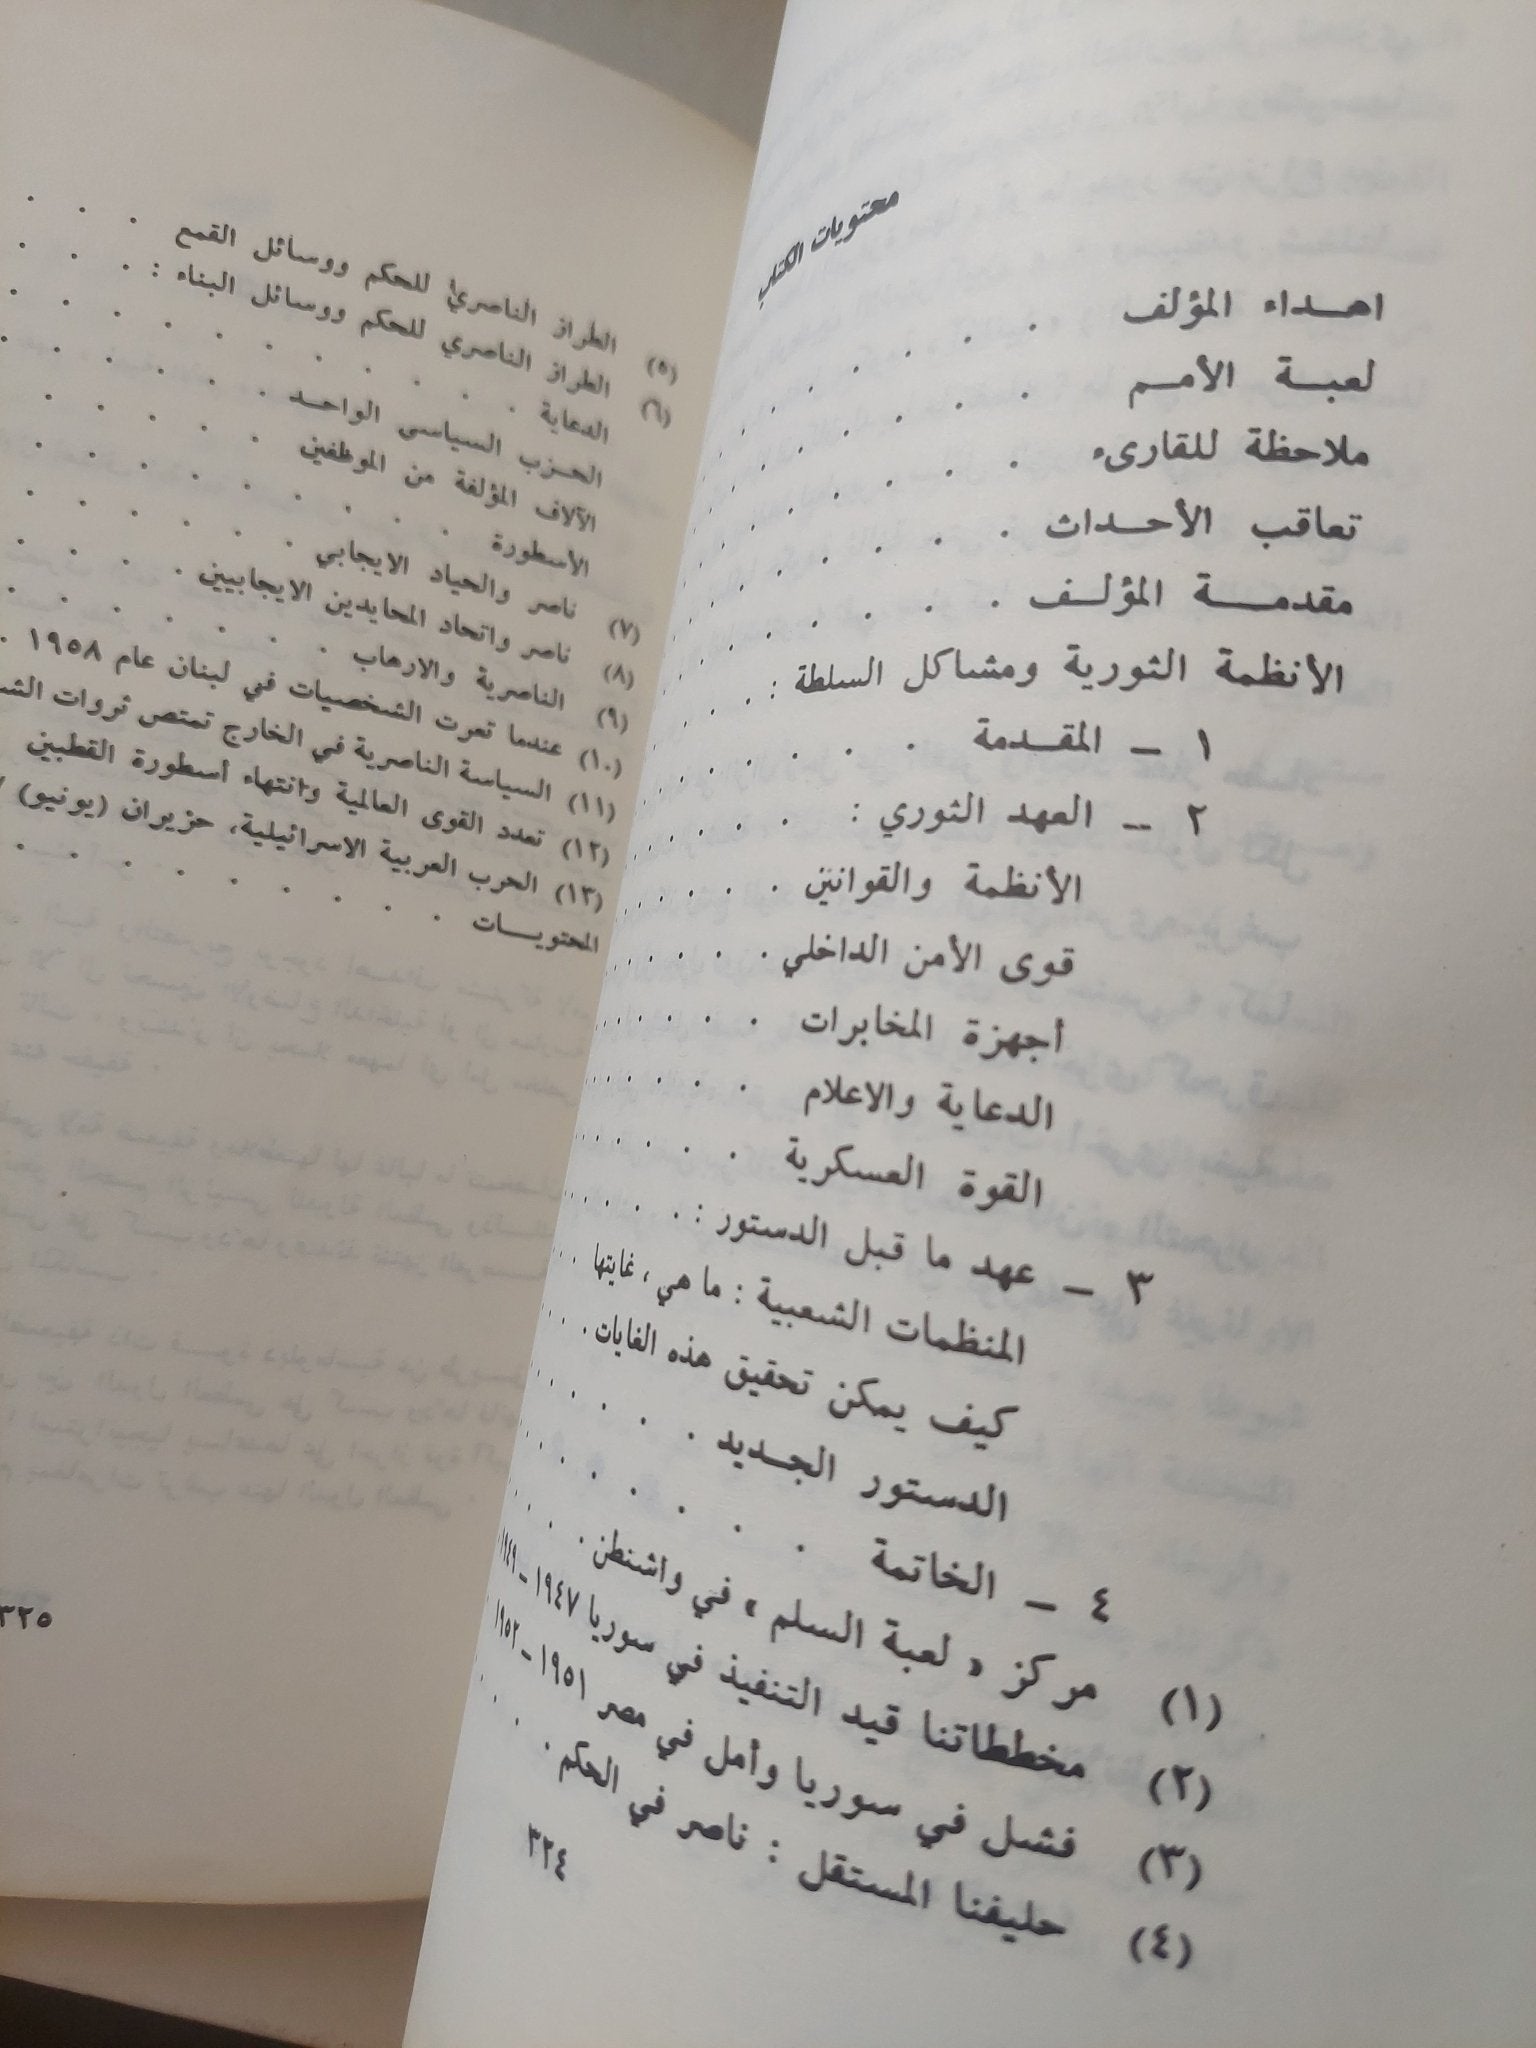 محتويات الكتاب
اهـــداء المؤلف . . . . . . . .
لعبـــة الأمـــم . . . . . . . .
ملاحظة للقارىء . . . . . . . .
تعاقب الأحــداث . . . . . . . .
مقدمـــــة المؤلــف . . . . . . . .
الأنظمة الثورية ومشاكل السلطة : . . . .
١ ــ المقــدمة . . . . . . .
٢ ــ العهد الثوري : . . . . . .
الأنظمة والقوانين . . . . . .
قوى الأمن الداخلي . . . . . .
أجهزة المخابرات . . . . . .
الدعاية والاعلام . . . . . .
القوة العسكرية . . . . . .
٣ ــ عهد ما قبل الدستور : . . . . .
المنظمات الشعبية : ما هي ، غايتها . . .
كيف يمكن تحقيق هذه الغايات . . .
الدستور الجــديد . . . . .
٤ ــ الخاتمة . . . . . . .
(١) مركز « لعبة السلم » في واشنطن . . . .
(٢) مخططاتنا قيد التنفيذ في سوريا ١٩٤٧ ــ ١٩٤٩
(٣) فشل في سوريا وأمل في مصر ١٩٥١ ــ ١٩٥٢
(٤) حليفنا المستقل : ناصر في الحكم . . . .
٣٢٤
(٥) الطراز الناصري للحكم ووسائل القمع . . .
(٦) الطراز الناصري للحكم ووسائل البناء : . . .
الدعاية . . . . . . . .
الحــزب السياسي الواحــد . . . . .
الآلاف المؤلفة من الموظفين . . . . .
الأسطورة . . . . . . . .
(٧) ناصر والحياد الايجابي . . . . . .
(٨) ناصر واتحاد المحايدين الايجابيين . . . .
(٩) الناصرية والارهاب . . . . . . .
(١٠) عندما تعرت الشخصيات في لبنان عام ١٩٥٨ .
(١١) السياسة الناصرية في الخارج تمتص ثروات
(١٢) تعدد القوى العالمية وانتهاء أسطورة القطبين
(١٣) الحرب العربية الاسرائيلية، حزيران (يونيو)
المحتويـــات . . . . . . . .
٣٢٥